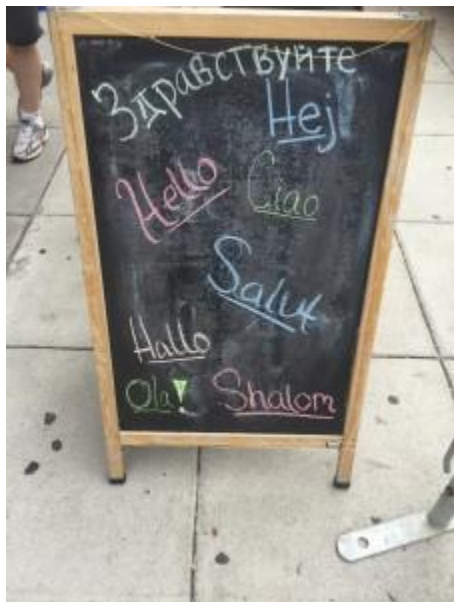 Здравствуйте
Hej
Hello
Ciao
Salut
Hallo
Ola!
Shalom